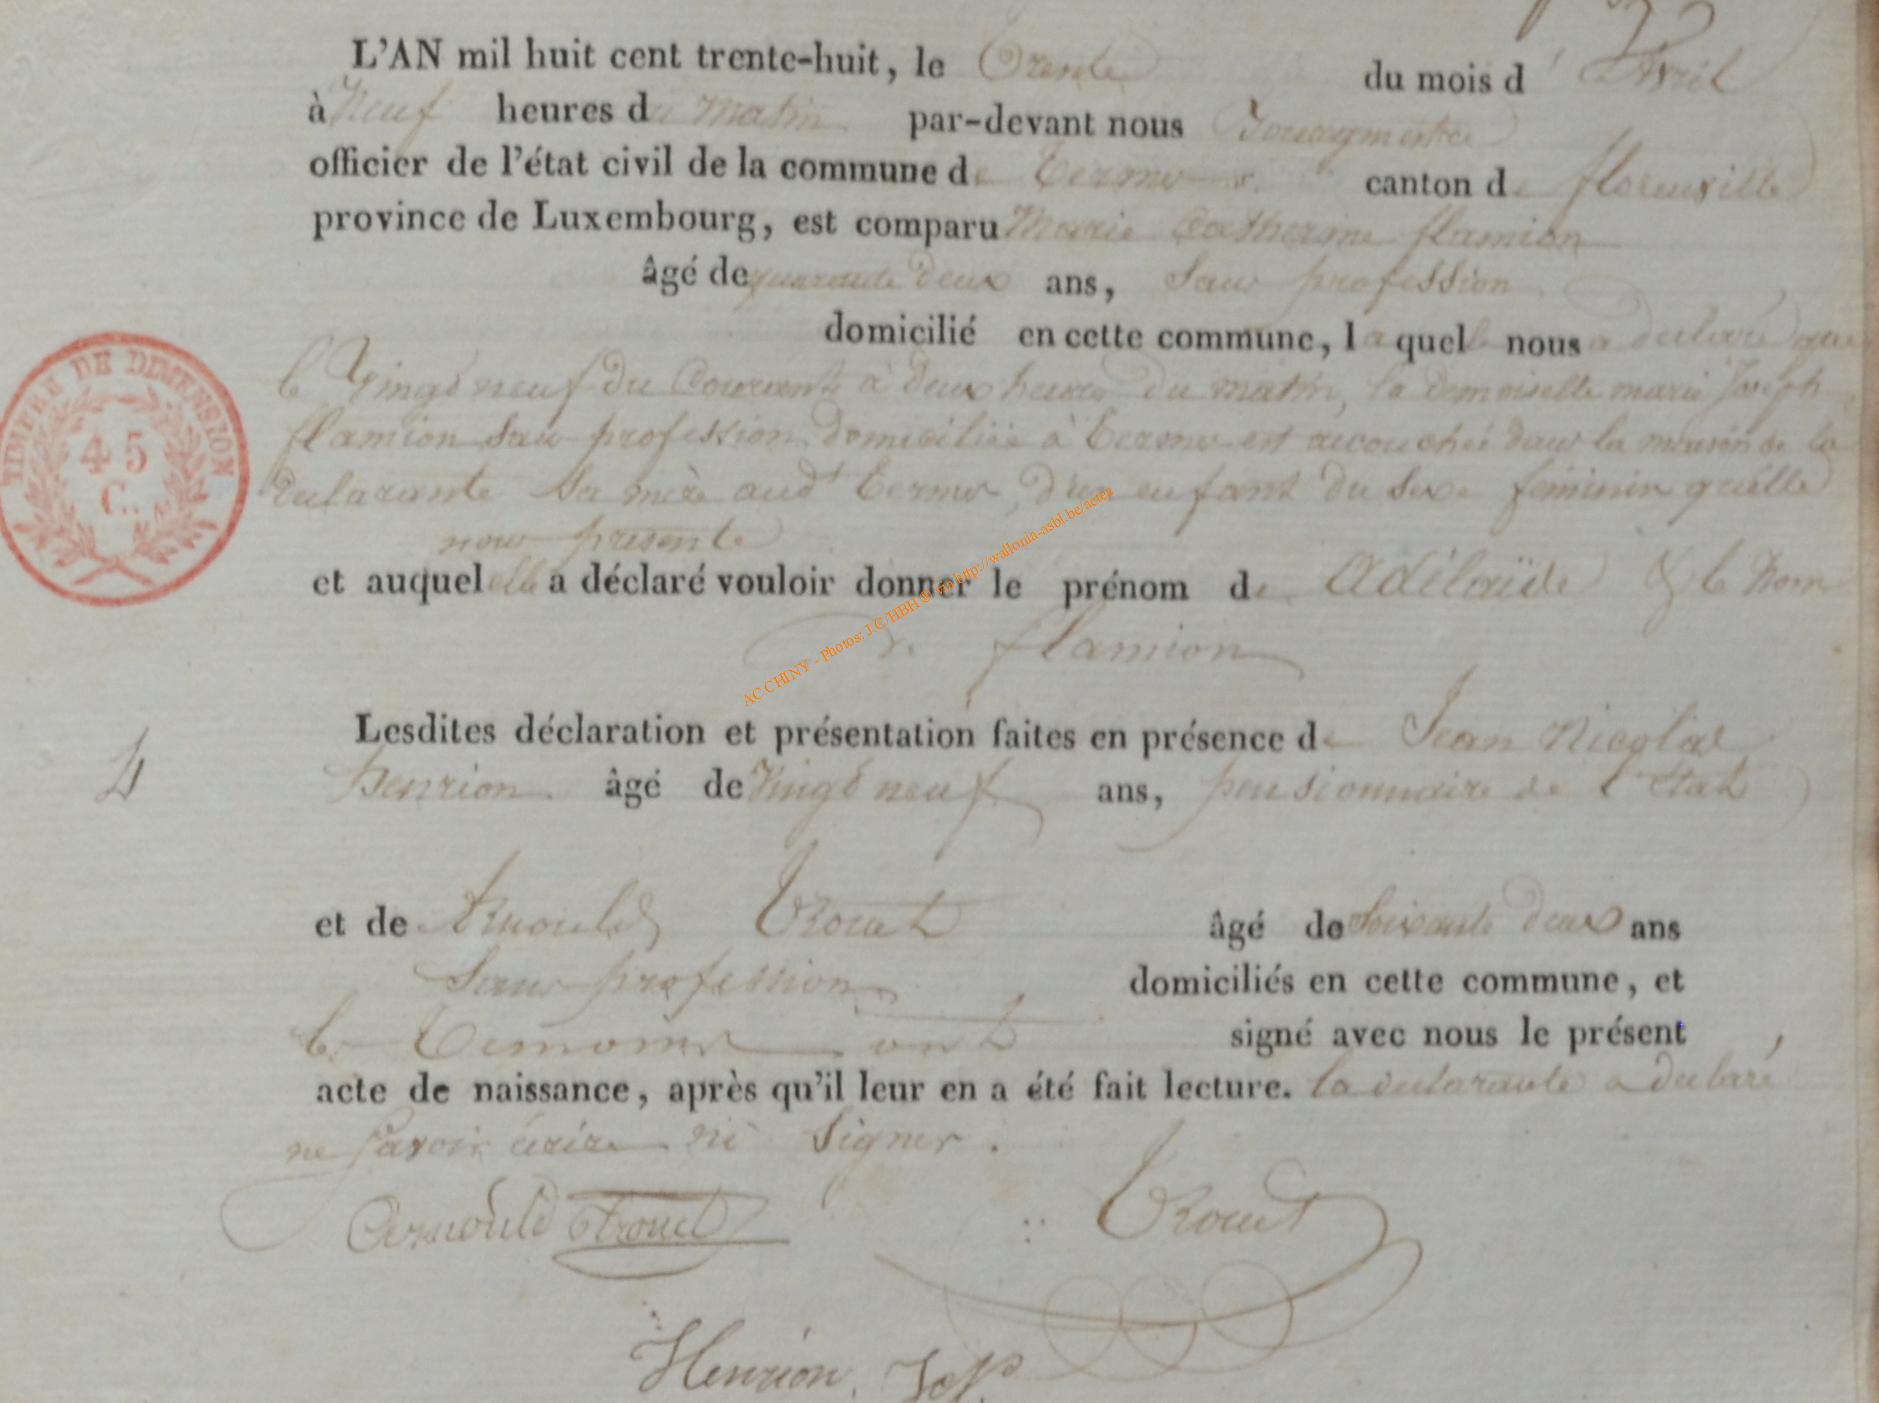 L'AN mil huit cent trente-huit, le Trente du mois d' Avril
à Neuf heures du matin par-devant nous
officier de l'état civil de la commune de Termes canton de florenville
province de Luxembourg, est comparu Marie Catherine flamion
âgé de quarante deux ans, Sans profession
domicilié en cette commune, laquelle nous a déclaré que
le Vingt neuf du Courant à deux heures du matin, la demoiselle marie Joseph
flamion Sans profession domiciliée à Termes est accouchée dans la maison de la
déclarante Sa mère aud.t Termes, d'un enfant du Sexe féminin qu'elle
nous présente
et auquel elle a déclaré vouloir donner le prénom de Adélaïde & le Nom
de flamion
Lesdites déclaration et présentation faites en présence de Jean Nicolas
henrion âgé de Vingt neuf ans, pensionnaire de l'état
4
et de Arnould Trouet âgé de Soixante deux ans
Sans profession domiciliés en cette commune, et
les Temoins ont signé avec nous le présent
acte de naissance, après qu'il leur en a été fait lecture. la déclarante a déclaré
ne Savoir écrire ni Signer.
Arnould Trouet Trouet
Henrion,
TIMBRE DE DIMENSION
45
C.
AC CHINY - Photos: J.C/HBH & via http://wallonia-asbl.be/actes